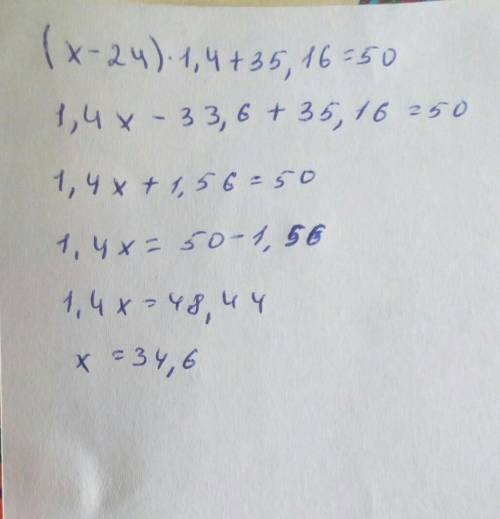 (x-24)·1,4+35,16=50
1,4x-33,6+35,16=50
1,4x+1,56=50
1,4x=50-1,56
1,4x=48,44
x=34,6